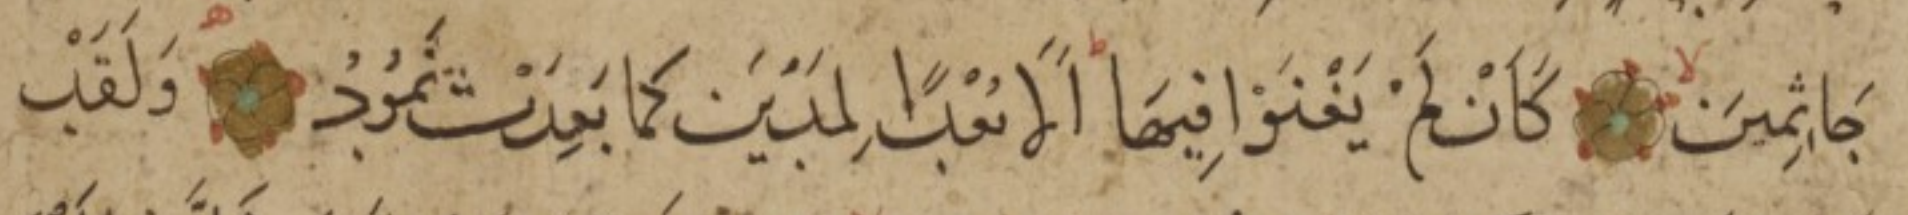 جَاثِمِينَ ۙ كَاَنْ لَمْ يَغْنَوْا فِيهَا ؕ اَلَا بُعْدًا لِمَدْيَنَ كَمَا بَعِدَتْ ثَمُودُ ۞ وَلَقَدْ